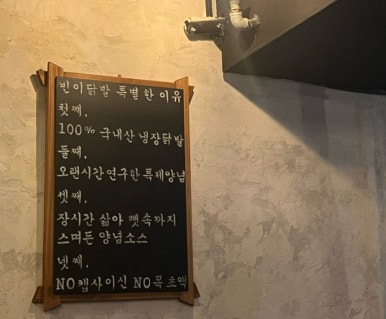 빈이닭발 특별한 이유
첫째.
100% 국내산 냉장닭발
둘째.
오랜시간연구한특제양념
셋째.
장시간 삶아 뼛속까지
스며든 양념소스
넷째.
NO캡사이신 NO목초액